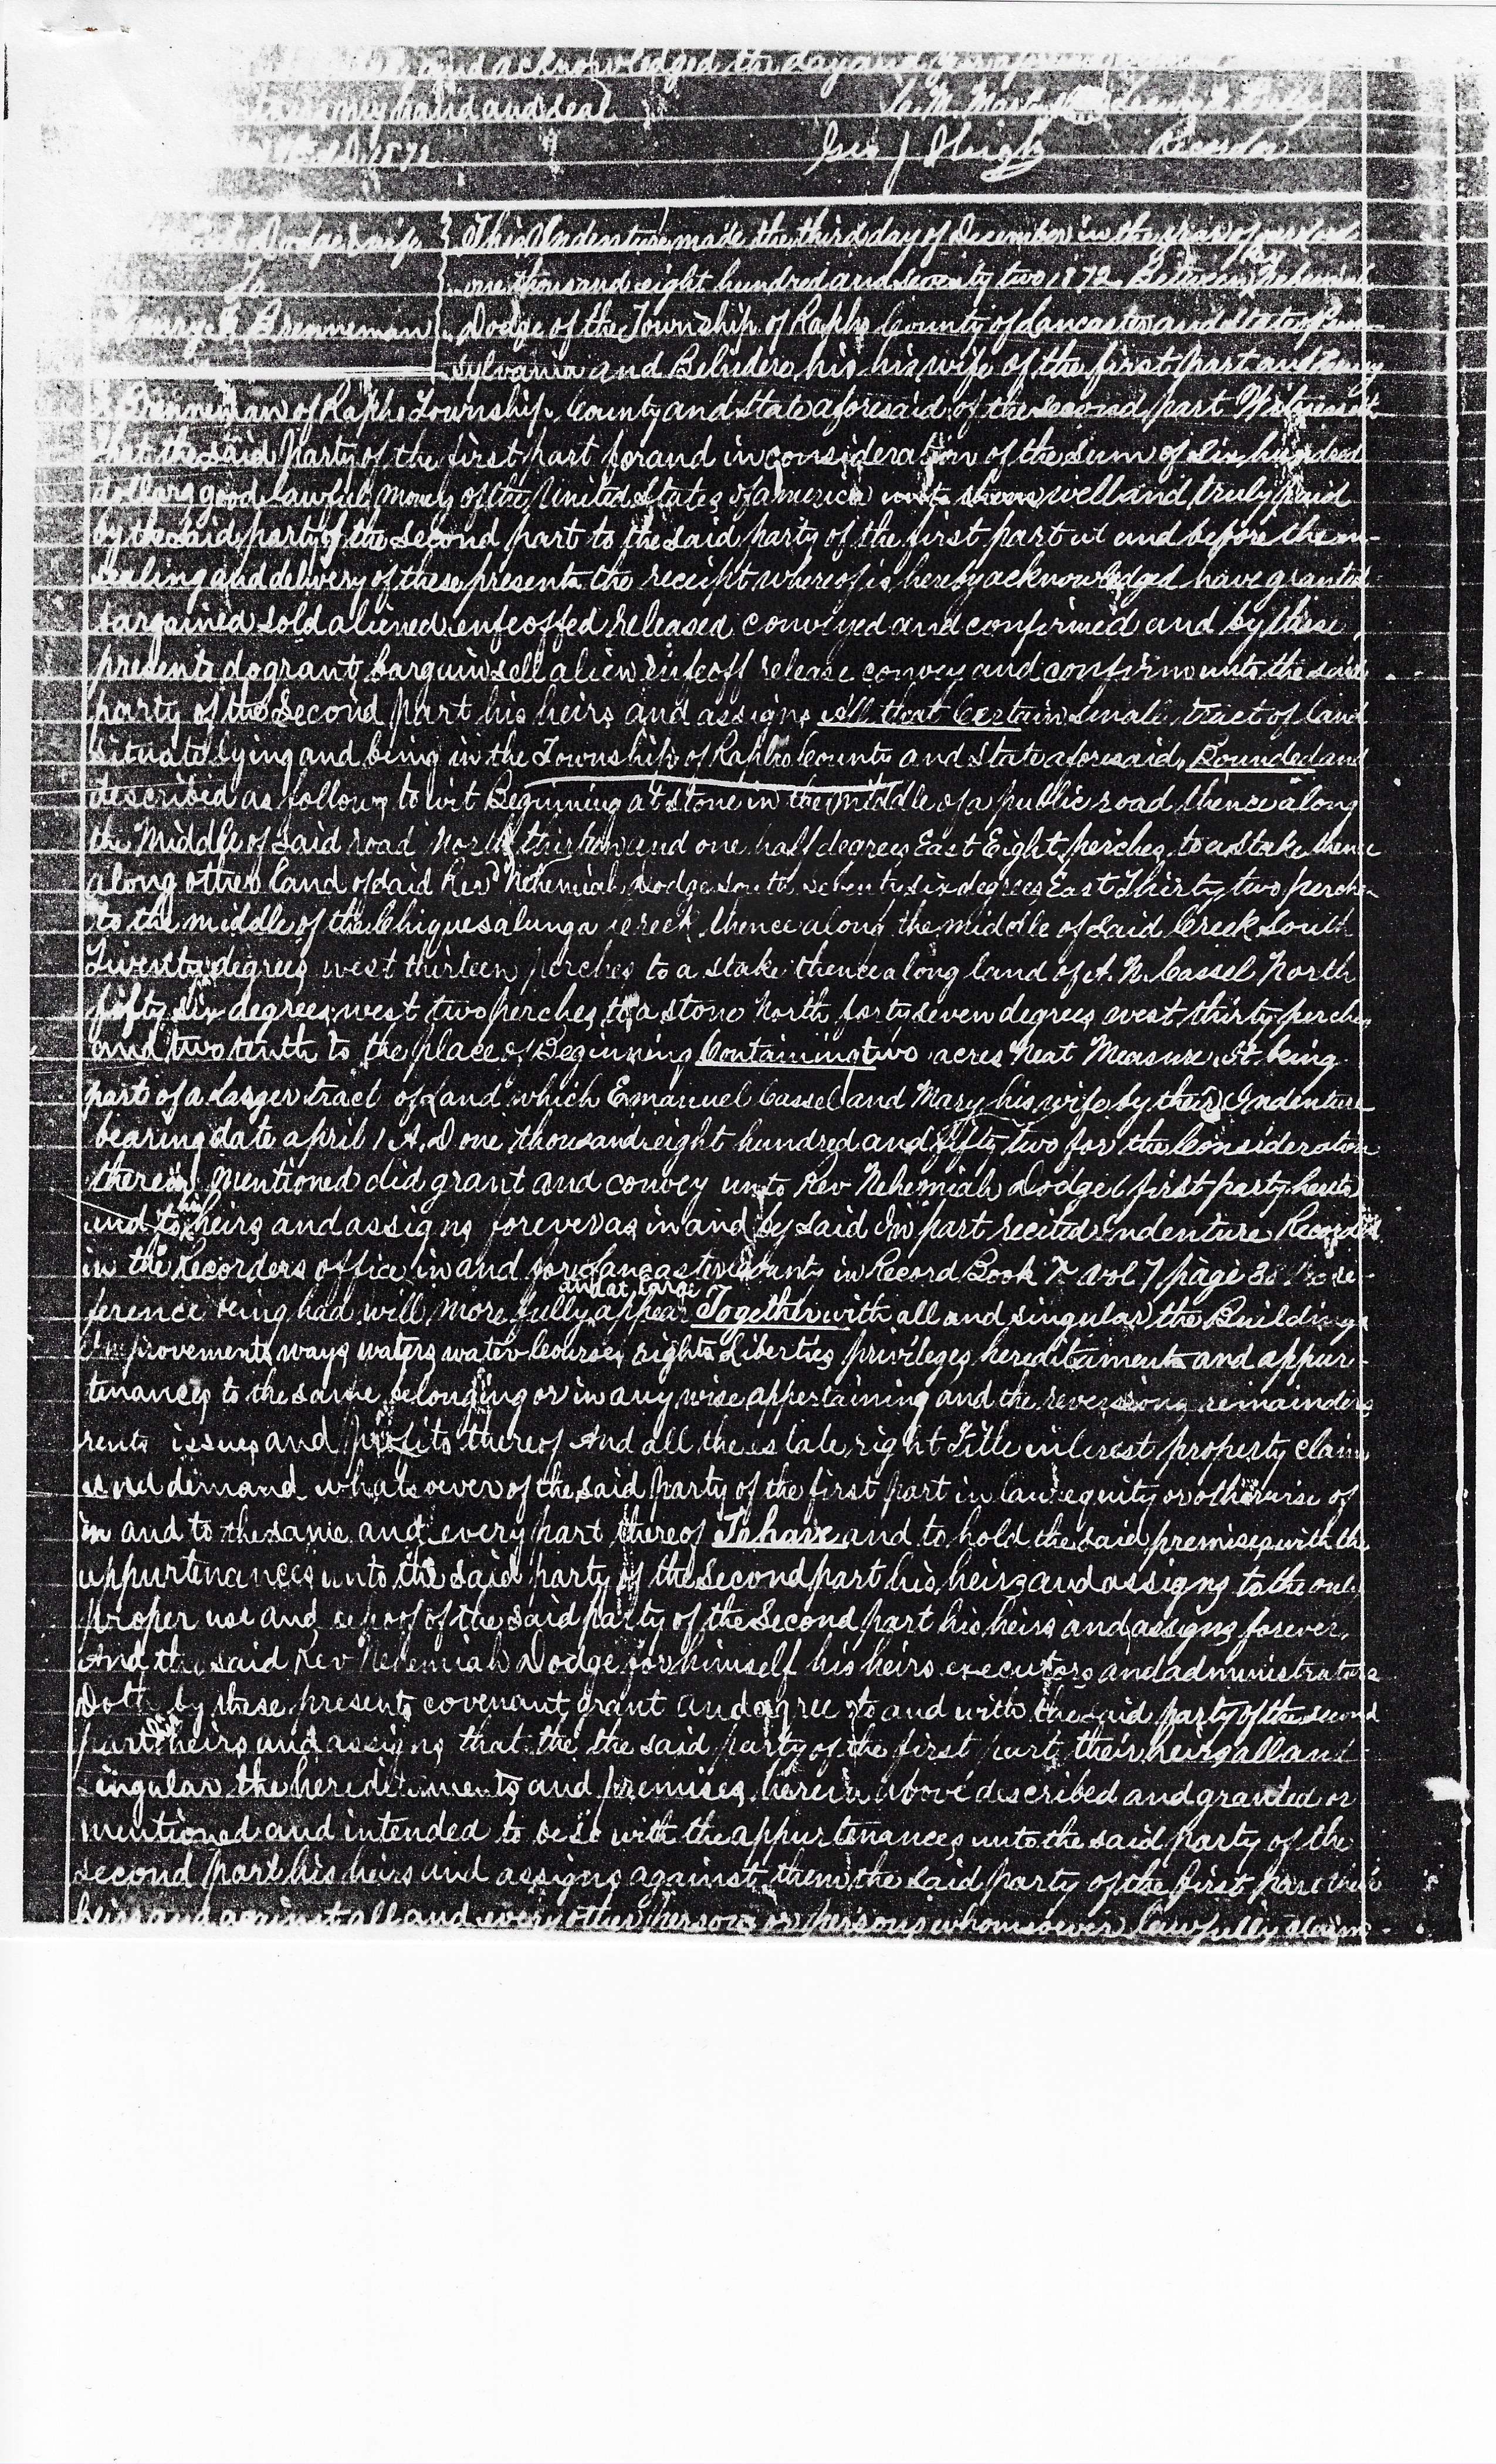 and acknowledged the day and
my hand and seal
1872 Geo Recorder
Dodge & wife This Indenture made the third day of December in the year of our Lord
To one thousand eight hundred and seventy two 1872 Between Rev Nehemiah
Henry Brenneman Dodge of the Township of Rapho County of Lancaster and State of Penn-
sylvania and Belvidere his his wife of the first part and Henry
Brenneman of Rapho Township County and State aforesaid of the second part Witnesseth
that the said Party of the first part for and in consideration of the Sum of Six hundred
dollars good lawful money of the United States of america well and truly paid
by the said party of the second part to the said party of the first part at and before the en-
sealing and delivery of these presents the receipt whereof is hereby acknowledged have granted
bargained sold aliened enfeoffed released conveyed and confirmed and by these
presents do grant bargain sell alien enfeoff release convey and confirm unto the said
party of the Second part his heirs and assigns All that Certain small tract of land
situate lying and being in the Township of Rapho County and State aforesaid, Bounded and
described as follows to wit Beginning at stone in the middle of a public road thence along
the Middle of Said road North thirteen and one half degrees East Eight perches to a Stake thence
along other land of said Rev Nehemiah Dodge south seventy six degrees East Thirty two perches
to the middle of the Chiquesalunga creek thence along the middle of Said Creek South
Twenty degrees west thirteen perches to a stake thence along land of A. N. Cassel North
fifty six degrees west two perches to a stone North forty seven degrees west thirty perches
and two tenth to the place of Beginning Containing two acres Neat Measure It being
part of a larger tract of Land which Emanuel Cassel and Mary his wife by their Indenture
bearing date april 1 A.D one thousand eight hundred and fifty two for the Consideration
therein mentioned did grant and convey unto Rev Nehemiah Dodge (first party hereto
and to his heirs and assigns forever as in and by said In part recited Indenture Recorded
in the Recorders office in and for Lancaster County in Record Book vol 7 page re-
ference being had will more fully and at large appear Together with all and singular the Buildings
Improvements ways waters water Courses rights Liberties privileges hereditaments and appur-
tenances to the same belonging or in any wise appertaining and the reversions remainders
rents issues and profits thereof And all the estate right Title interest property claim
and demand whatsoever of the said party of the first part in law equity or otherwise of
in and to the same and every part thereof To have and to hold the said premises with the
appurtenances unto the said party of the Second part his heirs and assigns to the only
proper use and behoof of the said party of the Second part his heirs and assigns forever.
And the said Rev Nehemiah Dodge for himself his heirs executors and administrators
Doth by these presents covenant grant and agree to and with the said party of the second
part his heirs and assigns that the the said party of the first part their heirs all and
singular the hereditaments and premises herein above described and granted or
mentioned and intended to be so with the appurtenances unto the said party of the
second part his heirs and assigns against them the said party of the first part their
heirs and against all and every other person or persons whomsoever lawfully claim-